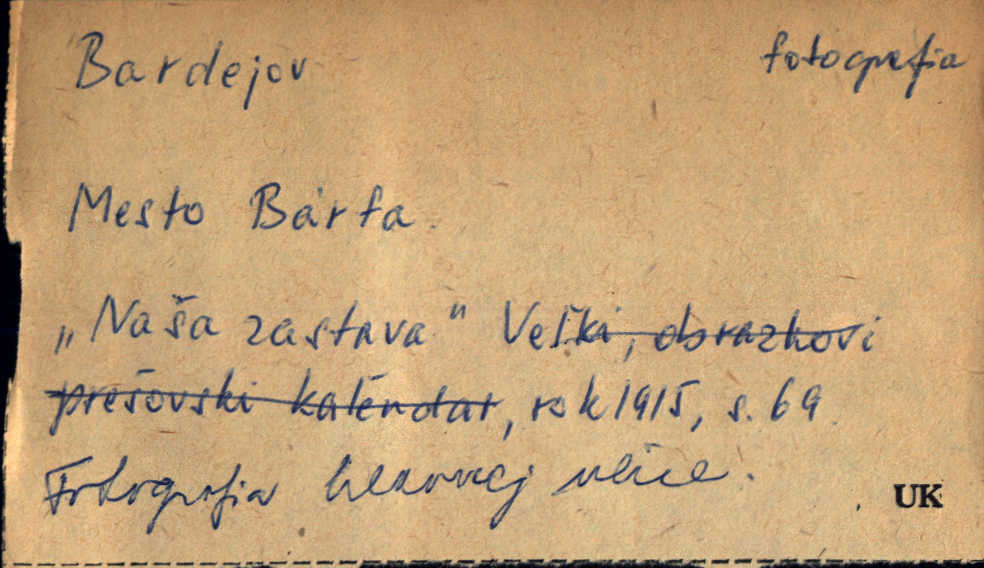 Bardejov fotografia
Mesto Bárta.
„Naša zastava" Veľki, obrazkovi
prešovski kalendar, rok 1915, s. 69.
Fotografia hlavnej ulice.
UK